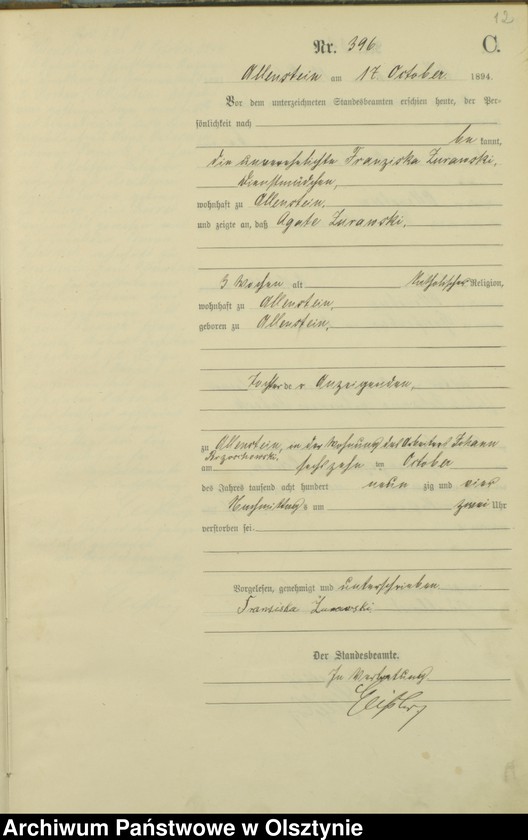 12
Nr. 396 C.
Allenstein am 17 October 1894.
Vor dem unterzeichneten Standesbeamten erschien heute, der Per-
sönlichkeit nach
be kannt,
die unverehelichte Franziska Zurawski,
Dienstmädchen,
wohnhaft zu Allenstein,
und zeigte an, daß Agate Zurawski,
3 Wochen alt katholischer Religion,
wohnhaft zu Allenstein,
geboren zu Allenstein,
Tochter der Anzeigenden,
zu Allenstein, in der Wohnung des Arbeiters Johann
am sechszehn ten October
des Jahres tausend acht hundert neun zig und vier
Nachmittags um zwei Uhr
verstorben sei.
Vorgelesen, genehmigt und unterschrieben
Franziska Zurawski
Der Standesbeamte.
In Vertretung
Archiwum Państwowe w Olsztynie